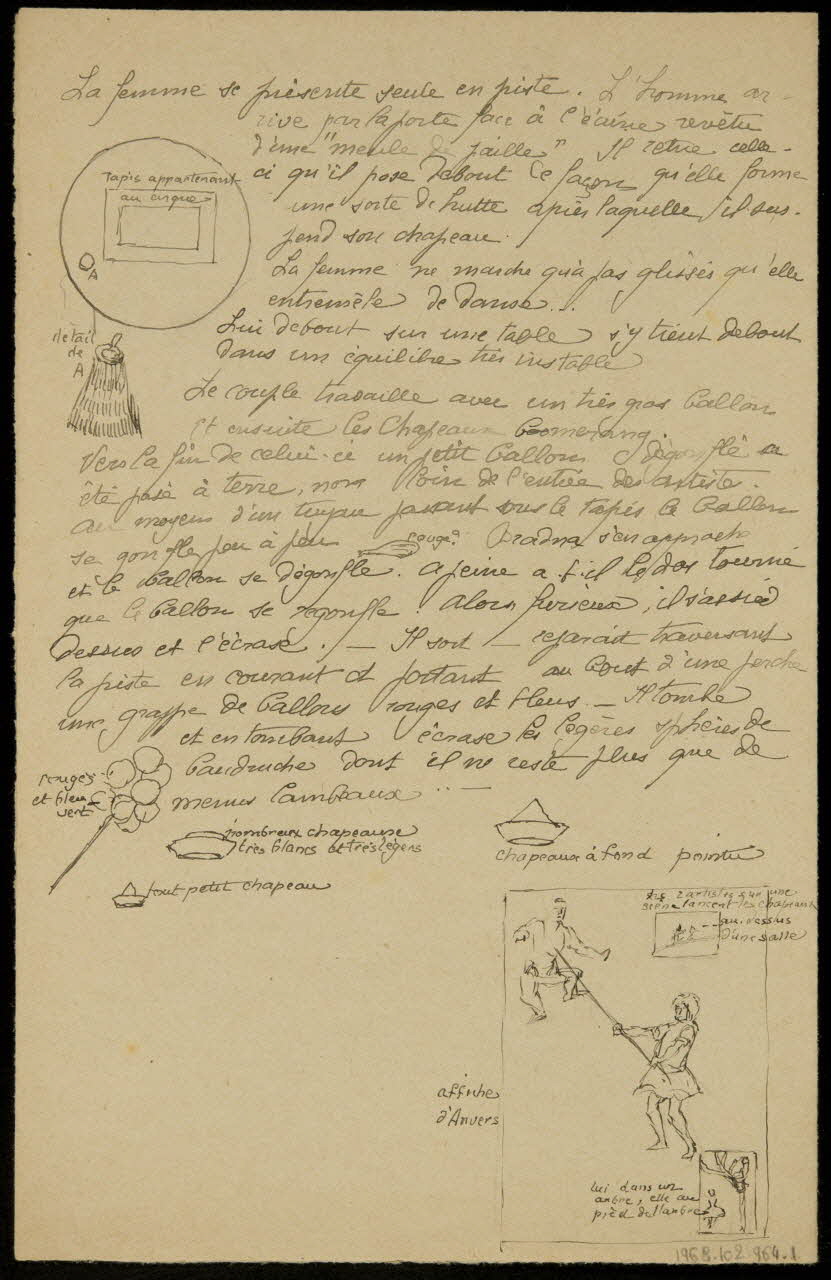 La femme se présente seule en piste. L'homme ar-
rive par la porte face à l'écurie revêtu
d'une "meule de paille" Il retire celle-
ci qu'il pose debout de façon qu'elle forme
une sorte de hutte après laquelle il sus-
pend son chapeau.
La femme ne marche qu'à pas glissés qu'elle
entremêle de danse...
Lui debout sur une table s'y tient debout
dans un équilibre très instable
Le couple travaille avec un très gros ballon
et ensuite les chapeaux boomerang.
Vers la fin de celui-ci un petit ballon dégonflé a
été posé à terre, non loin de l'entrée des artistes.
Au moyen d'un tuyau passant sous le tapis le ballon
se gonfle peu à peu rouge? s'en approche
et le ballon se dégonfle. A peine a-t-il le dos tourné
que le ballon se regonfle! Alors furieux, il s'assied
dessus et l'écrase. — Il sort — reparait traversant
la piste en courant et portant au bout d'une perche
une grappe de ballons rouges et bleus — Il tombe
et en tombant écrase les légères sphères de
baudruche dont il ne reste plus que de
menus lambeaux ... —
Tapis appartenant
au cirque
A
détail
de
A
rouges
et bleu
vert
nombreux chapeaux
très blancs et très légers
chapeaux à fond pointu
tout petit chapeau
les 2 artistes sur une
scène lancent les chapeaux
au-dessus
d'une salle
affiche
d'Anvers
lui dans un
arbre, elle au
pied de l'arbre
1968.102.964.1